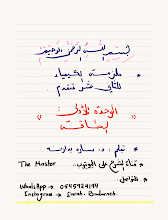 بسم الله الرحمن الرحيم
* ملزمة كيمياء
للثاني عشر متقدم
" الوحدة الأولى
الطاقة "
* بقلم: د. سارة بدارنة
* قناة الشرح على اليوتيوب: The Master
* للتواصل:
WhatsApp → 0545929194
Instagram → Sarah. Badarneh